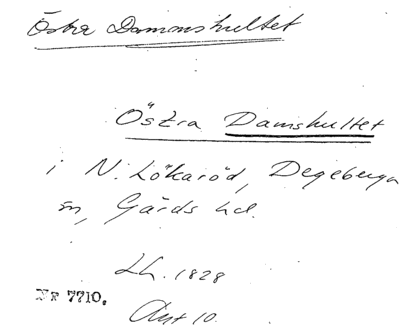 Östra Dammshultet
Östra Damshultet
i N. Lökaröd, Degeberga
sn, Gärds hd.
Lh. 1828
Nr 7710.
Akt 10.